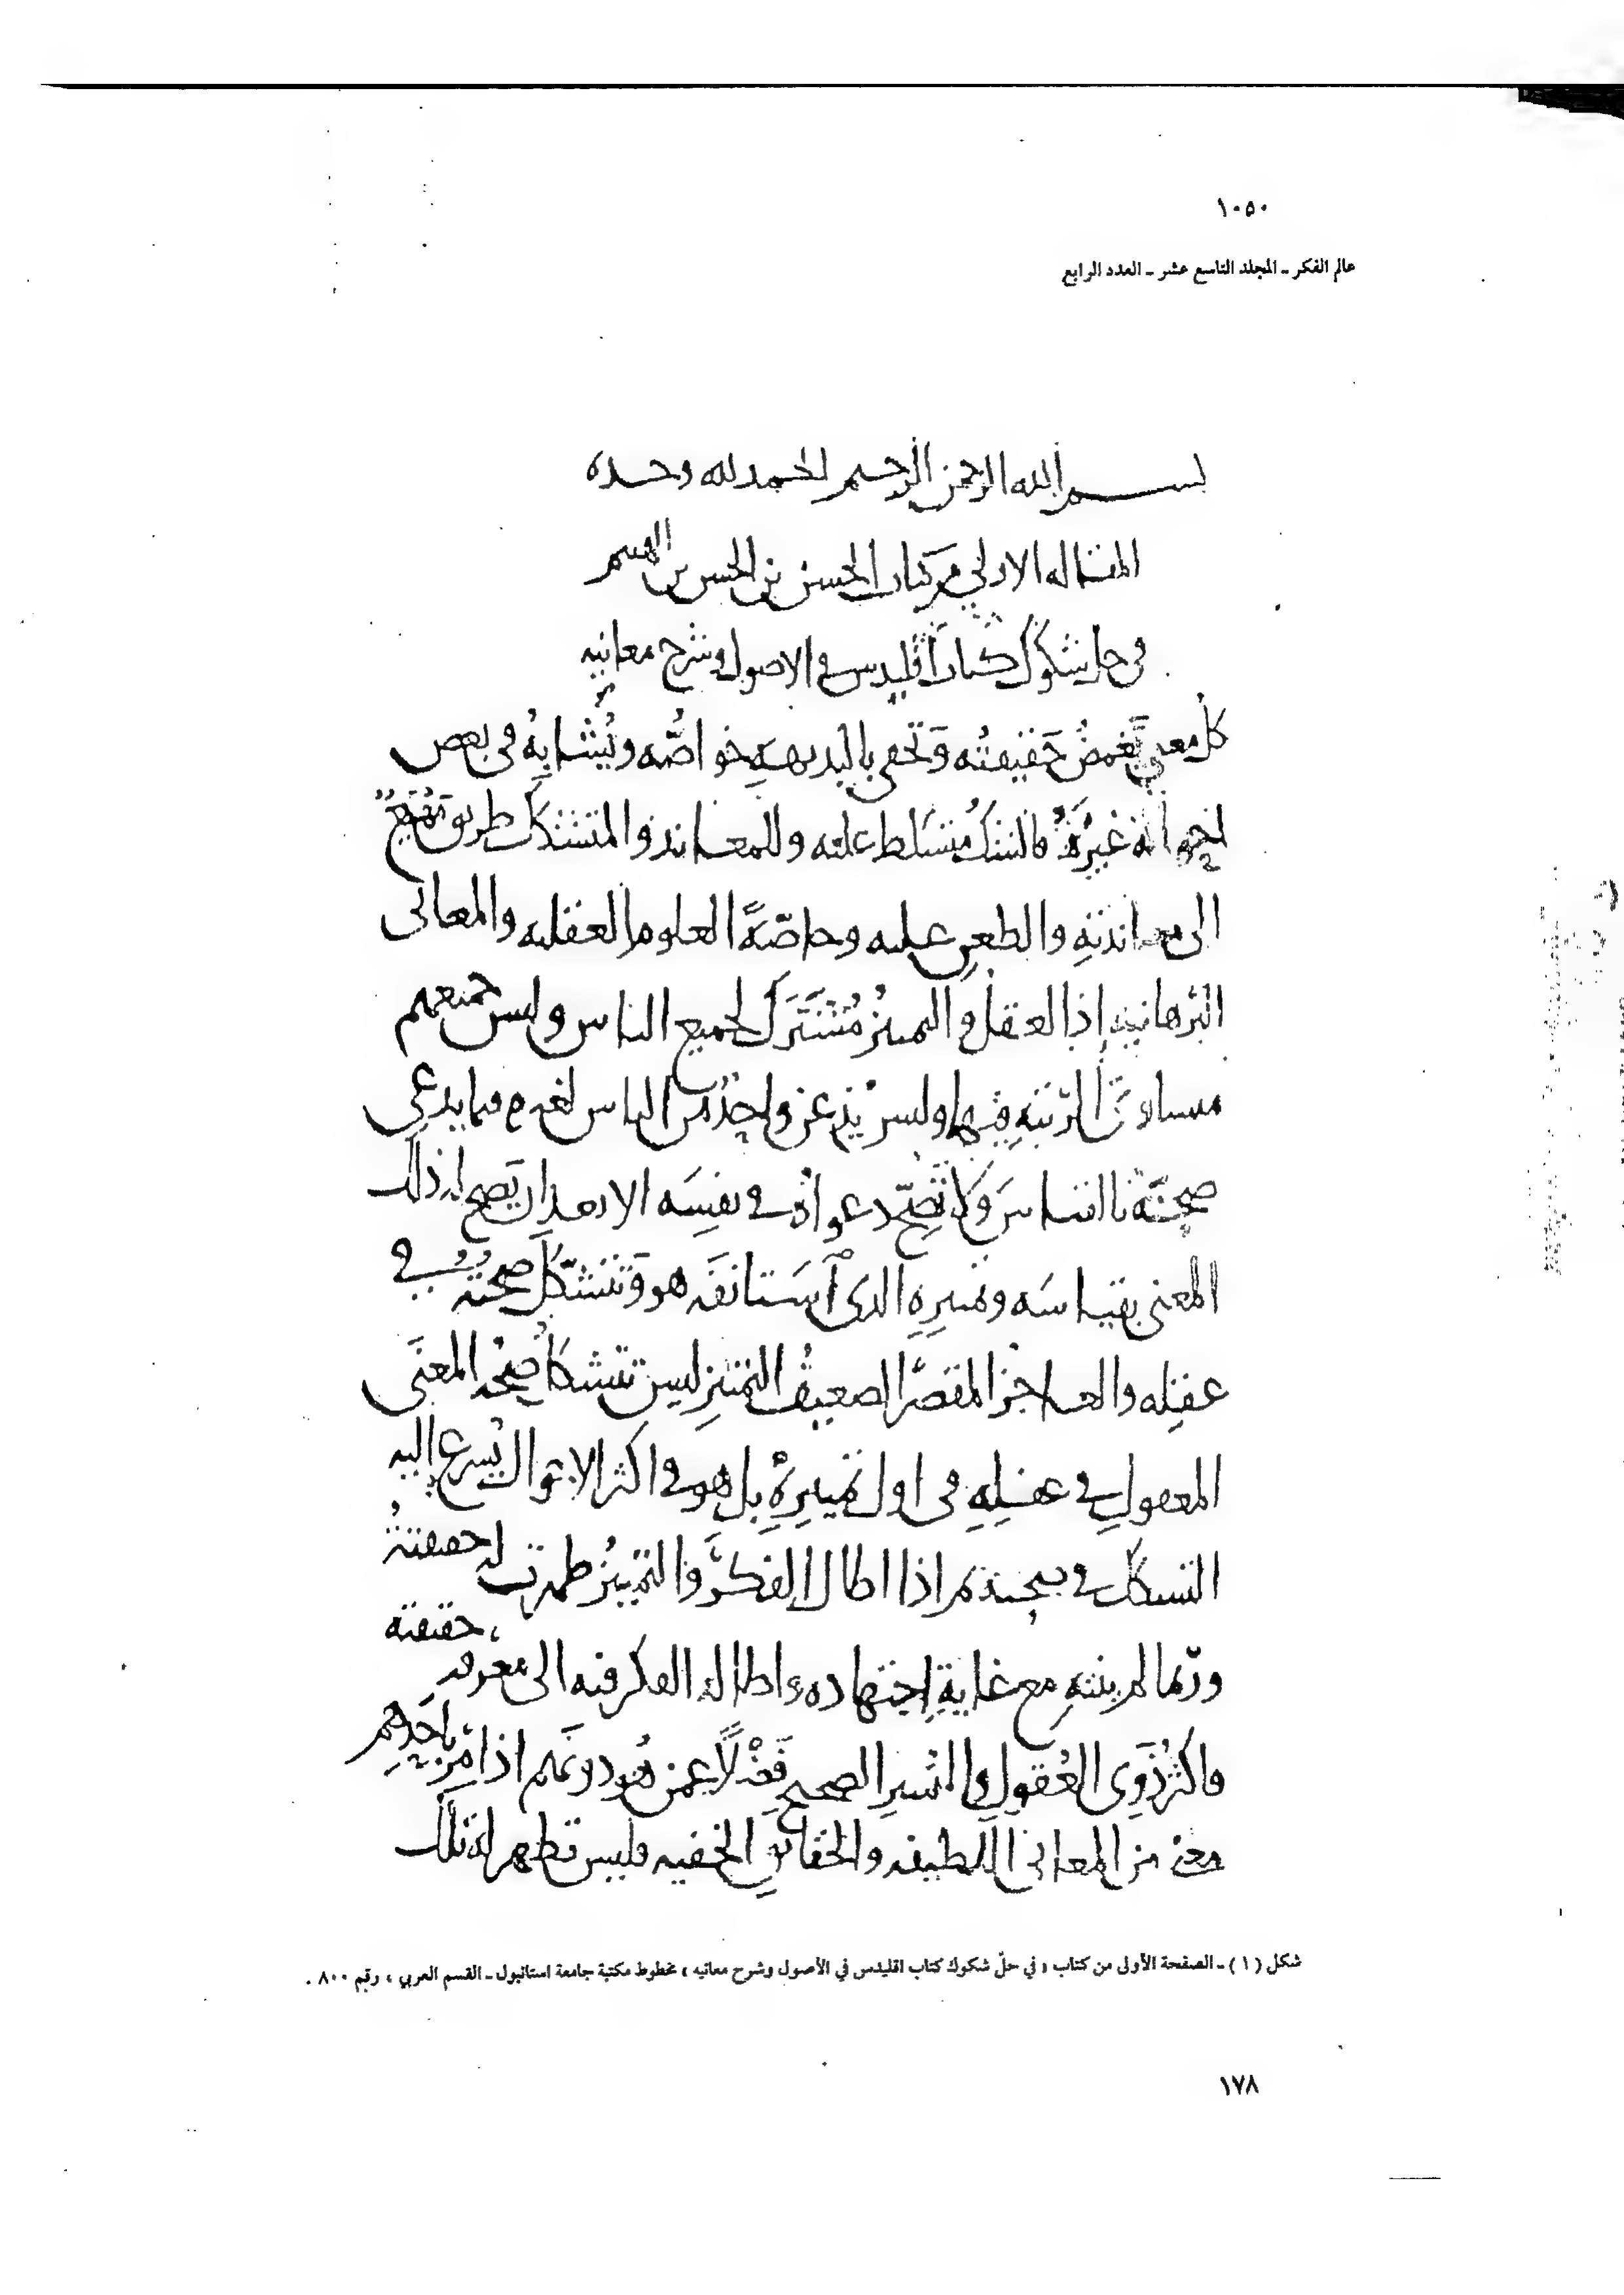 ١٠٥٠
عالم الفكر - المجلد التاسع عشر - العدد الرابع
بسم الله الرحمن الرحيم الحمد لله وحده
المقاله الاولى من كتاب الحسن بن الحسن بن الهيثم
في حل شكوك كتاب اقليدس في الاصول وشرح معانيه
كل معنى تغمض حقيقته وتخفى بالبديهة خواصه ويشابه في بعض
احواله غيره فالشك متسلط عليه وللمعاند والمتشكك طريق مهيع
الى معاندته والطعن عليه وخاصة العلوم العقليه والمعانى
البرهانيه اذ العقل والتمييز مشترك لجميع الناس وليس جميعهم
متساوى الرتبة فيهما وليس يذعن واحد من الناس لغيره فيما يدعى
صحته بالقياس ولا تصح دعواه في نفسه الا بعد ان يصح له ذلك
المعنى بقياسه وتمييزه الذى استانفه هو وتتشكل صحته في
عقله والعاجز المقصر الضعيف التمييز ليس تتشكل صحة المعنى
المعقول في عقله في اول تمييزه بل هو في اكثر الاحوال يسرع اليه
التشكك في صحته ثم اذا اطال الفكر والتمييز ظهرت له حقيقته
وربما لم ينته مع غاية اجتهاده واطالة الفكر فيه الى معرفة حقيقته
واكثر ذوى العقول والتمييز الصحيح فضلا عمن هو دونهم اذا مر باحدهم
معنى من المعانى اللطيفه والحقائق الخفيه فليس تظهر له تلك
شكل (١) - الصفحة الأولى من كتاب « في حلّ شكوك كتاب اقليدس في الأصول وشرح معانيه » مخطوط مكتبة جامعة استانبول - القسم العربي ، رقم ٨٠٠ .
١٧٨